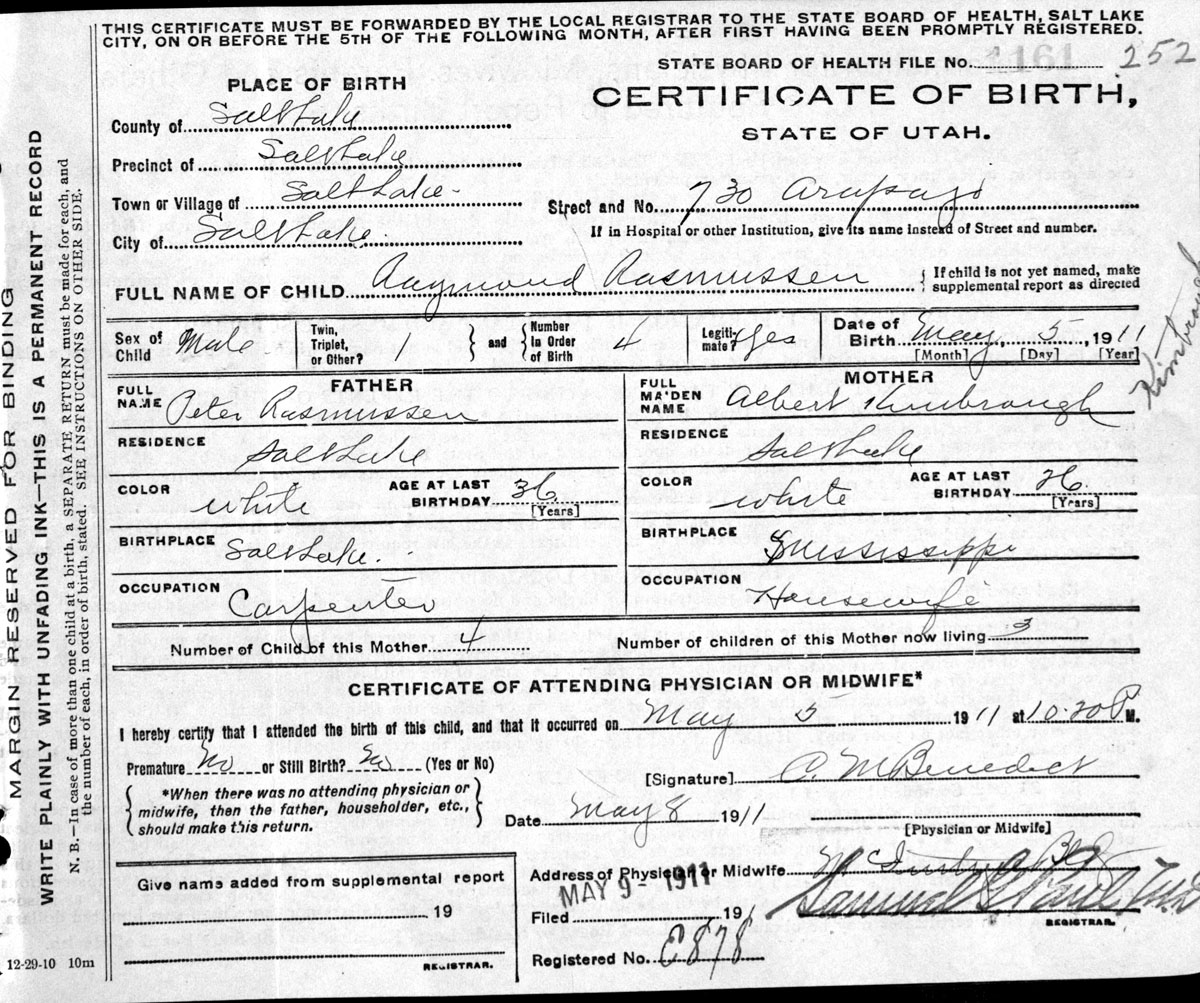 THIS CERTIFICATE MUST BE FORWARDED BY THE LOCAL REGISTRAR TO THE STATE BOARD OF HEALTH, SALT LAKE
CITY, ON OR BEFORE THE 5TH OF THE FOLLOWING MONTH, AFTER FIRST HAVING BEEN PROMPTLY REGISTERED.
STATE BOARD OF HEALTH FILE No. 1161 252
PLACE OF BIRTH
CERTIFICATE OF BIRTH,
STATE OF UTAH.
County of Salt Lake
Precinct of Salt Lake
Town or Village of Salt Lake
Street and No. 730
City of Salt Lake.
If in Hospital or other Institution, give its name instead of Street and number.
FULL NAME OF CHILD Raymond Rasmussen
If child is not yet named, make
supplemental report as directed
Sex of Child Male
Twin, Triplet, or Other? 1 and Number in Order of Birth 4
Legitimate? Yes
Date of Birth May 5 1911
[Month] [Day] [Year]
FATHER
MOTHER
FULL NAME Peter Rasmussen
FULL MAIDEN NAME Albert Kimbrough
Kimbrough
RESIDENCE Salt Lake
RESIDENCE Salt Lake
COLOR White AGE AT LAST BIRTHDAY 36 [Years]
COLOR White AGE AT LAST BIRTHDAY 36. [Years]
BIRTHPLACE Salt Lake.
BIRTHPLACE Mississippi
OCCUPATION Carpenter
OCCUPATION Housewife
Number of Child of this Mother 4
Number of children of this Mother now living 3
CERTIFICATE OF ATTENDING PHYSICIAN OR MIDWIFE*
I hereby certify that I attended the birth of this child, and that it occurred on May 5 1911 at 10.20 P M.
Premature No or Still Birth? No (Yes or No)
[Signature] C. M Benedict
*When there was no attending physician or
midwife, then the father, householder, etc.,
should make this return.
Date May 8 1911
[Physician or Midwife]
Give name added from supplemental report
19
REGISTRAR.
Address of Physician or Midwife
MAY 9 - 1911
Filed 191
Samuel G.
REGISTRAR.
Registered No. 878
12-29-10 10m
MARGIN RESERVED FOR BINDING
WRITE PLAINLY WITH UNFADING INK—THIS IS A PERMANENT RECORD
N. B.—In case of more than one child at a birth, a SEPARATE RETURN must be made for each, and
the number of each, in order of birth, stated. SEE INSTRUCTIONS ON OTHER SIDE.